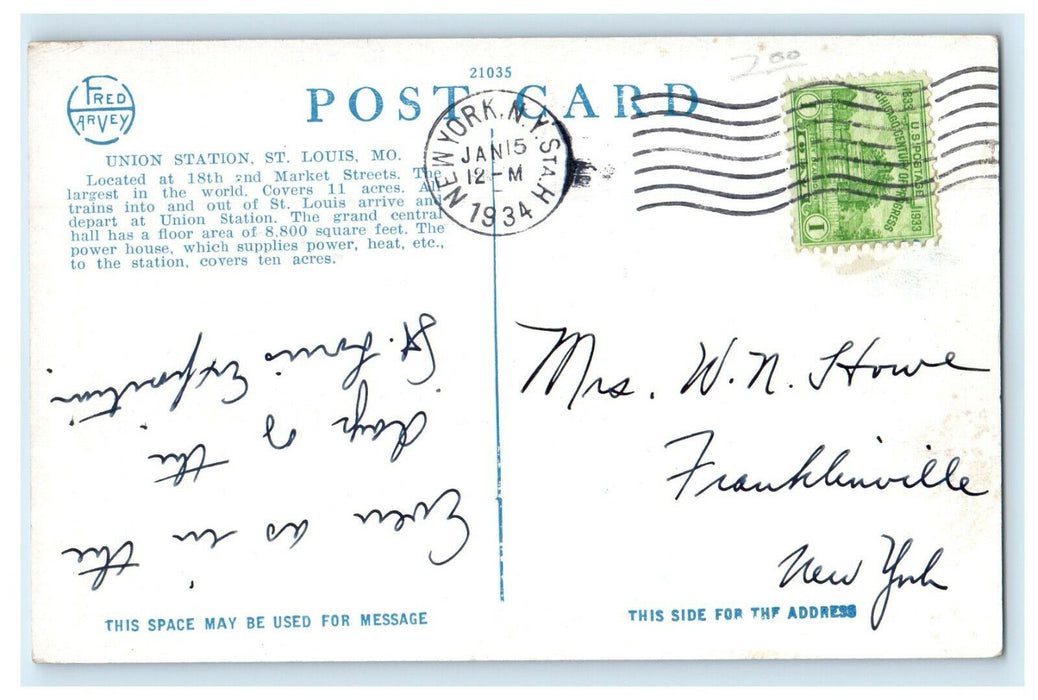 FRED
HARVEY
21035
POST CARD
UNION STATION, ST. LOUIS, MO.
Located at 18th and Market Streets. The
largest in the world. Covers 11 acres. All
trains into and out of St. Louis arrive and
depart at Union Station. The grand central
hall has a floor area of 8,800 square feet. The
power house, which supplies power, heat, etc.,
to the station, covers ten acres.
Even as in the
days of the
St. Louis Exposition.
THIS SPACE MAY BE USED FOR MESSAGE
2.00
NEW YORK, N.Y. STA. H
JAN 15
12-M
1934
1833 U.S. POSTAGE 1933
CHICAGO CENTURY OF PROGRESS
1
1
Mrs. W. N. Howe
Franklinville
New York
THIS SIDE FOR THE ADDRESS